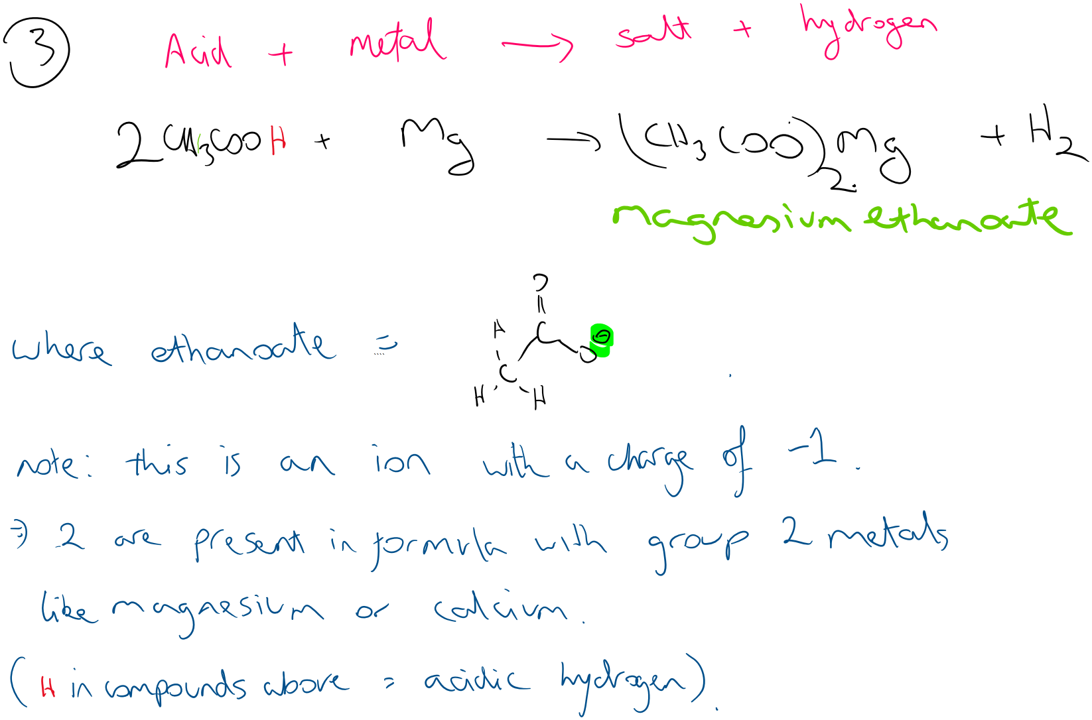 ③ Acid + metal → salt + hydrogen
2CH₃COOH + Mg → (CH₃COO)₂Mg + H₂
magnesium ethanoate
O
H C O ⊖
where ethanoate =
C
H H
note: this is an ion with a charge of -1.
⇒ 2 are present in formula with group 2 metals
like magnesium or calcium.
(H in compounds above = acidic hydrogen).